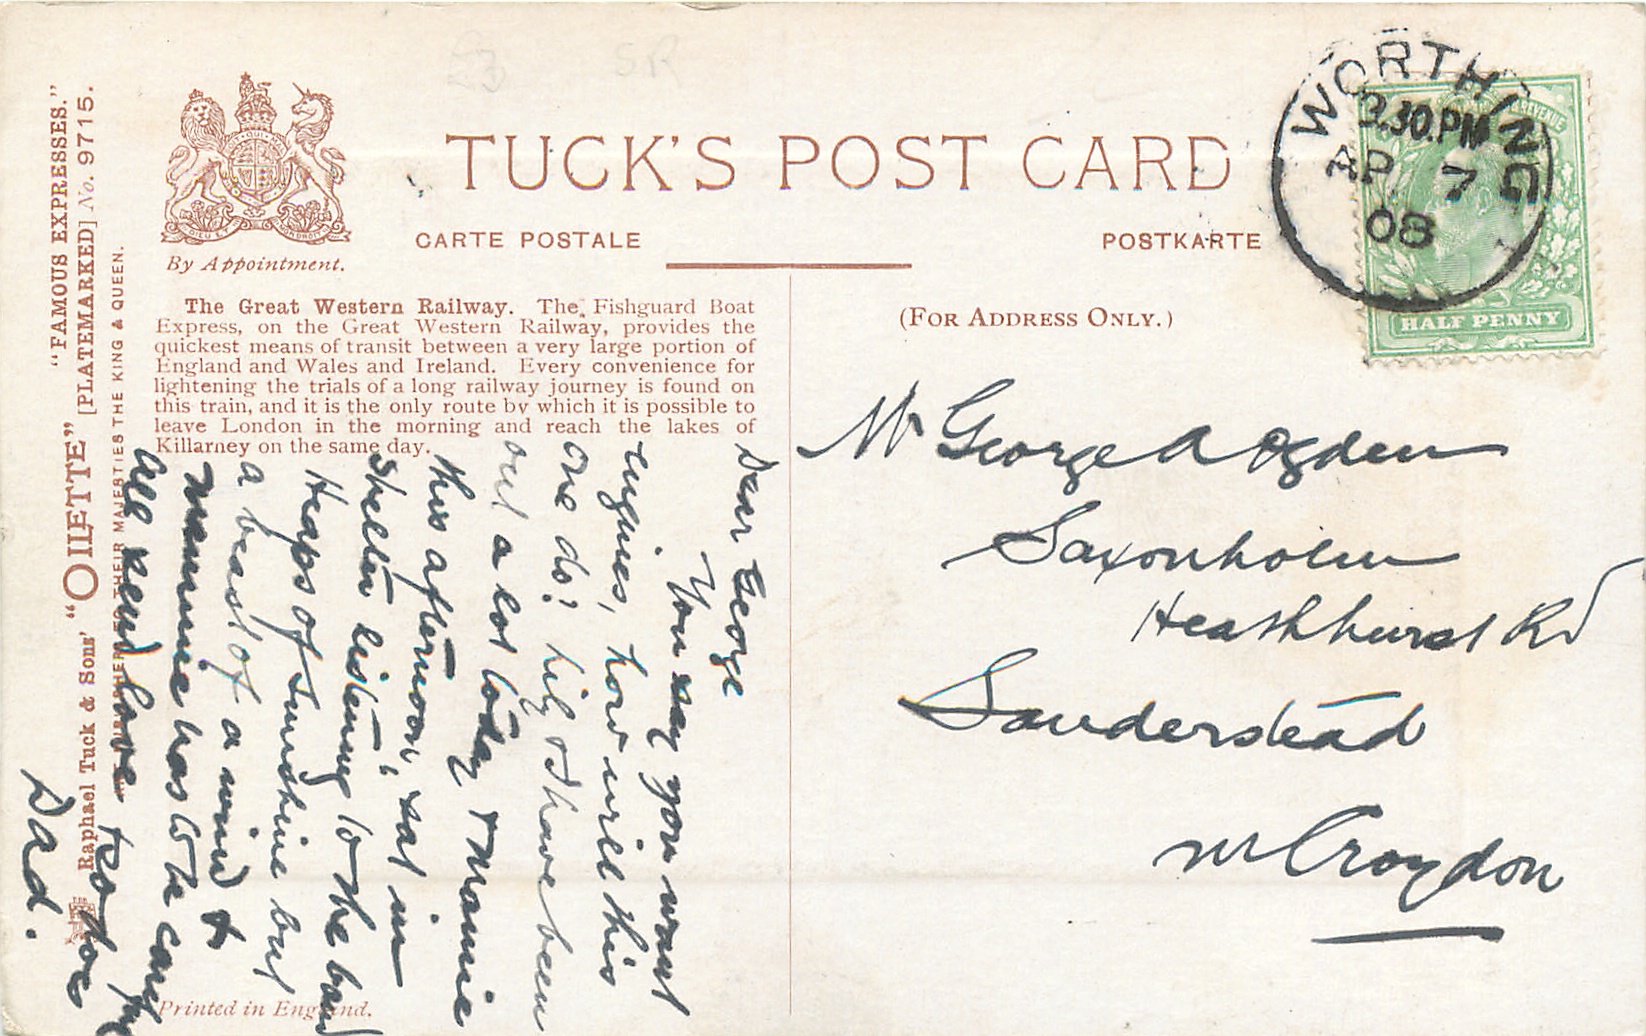 "FAMOUS EXPRESSES."
[PLATEMARKED] No. 9715.
Raphael Tuck & Sons' "OILETTE"
MAJESTIES THE KING & QUEEN.
By Appointment.
TUCK'S POST CARD
CARTE POSTALE
POSTKARTE
(FOR ADDRESS ONLY.)
WORTHING
3.30.PM
AP 7
08
REVENUE
HALF PENNY
The Great Western Railway. The Fishguard Boat
Express, on the Great Western Railway, provides the
quickest means of transit between a very large portion of
England and Wales and Ireland. Every convenience for
lightening the trials of a long railway journey is found on
this train, and it is the only route by which it is possible to
leave London in the morning and reach the lakes of
Killarney on the same day.
Dear George
You say you want
engines, how will this
one do? Lily & I have been
out a lot today & Mamie
this afternoon, sat in
shelter listening to the band
Heaps of sunshine but
a beast of a wind &
Mamie has to be careful
All send love to
Dad.
Mr George A Ogden
Saxonholm
Heathhurst Rd
Sanderstead
nr Croydon
Printed in England.